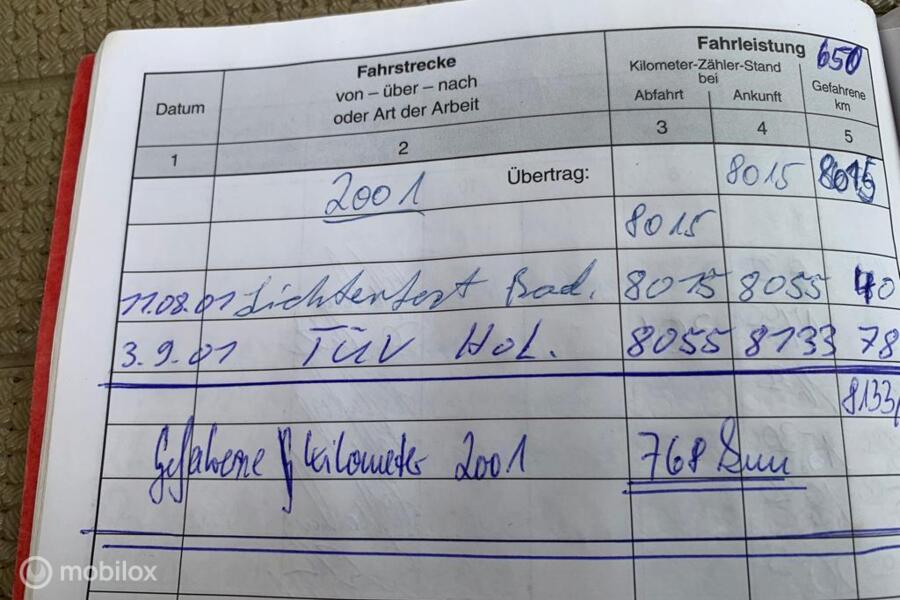 Fahrleistung 650
Fahrstrecke
Kilometer-Zähler-Stand
von – über – nach
bei
Gefahrene
Datum
oder Art der Arbeit
Abfahrt Ankunft
km
1 2 3 4 5
2001 Übertrag: 8015 8015
8015
11.08.01 Lichterfest Bad. 8015 8055 40
3.9.01 TÜV Hol. 8055 8133 78
8133
Gefahrene Kilometer 2001 768
mobilox